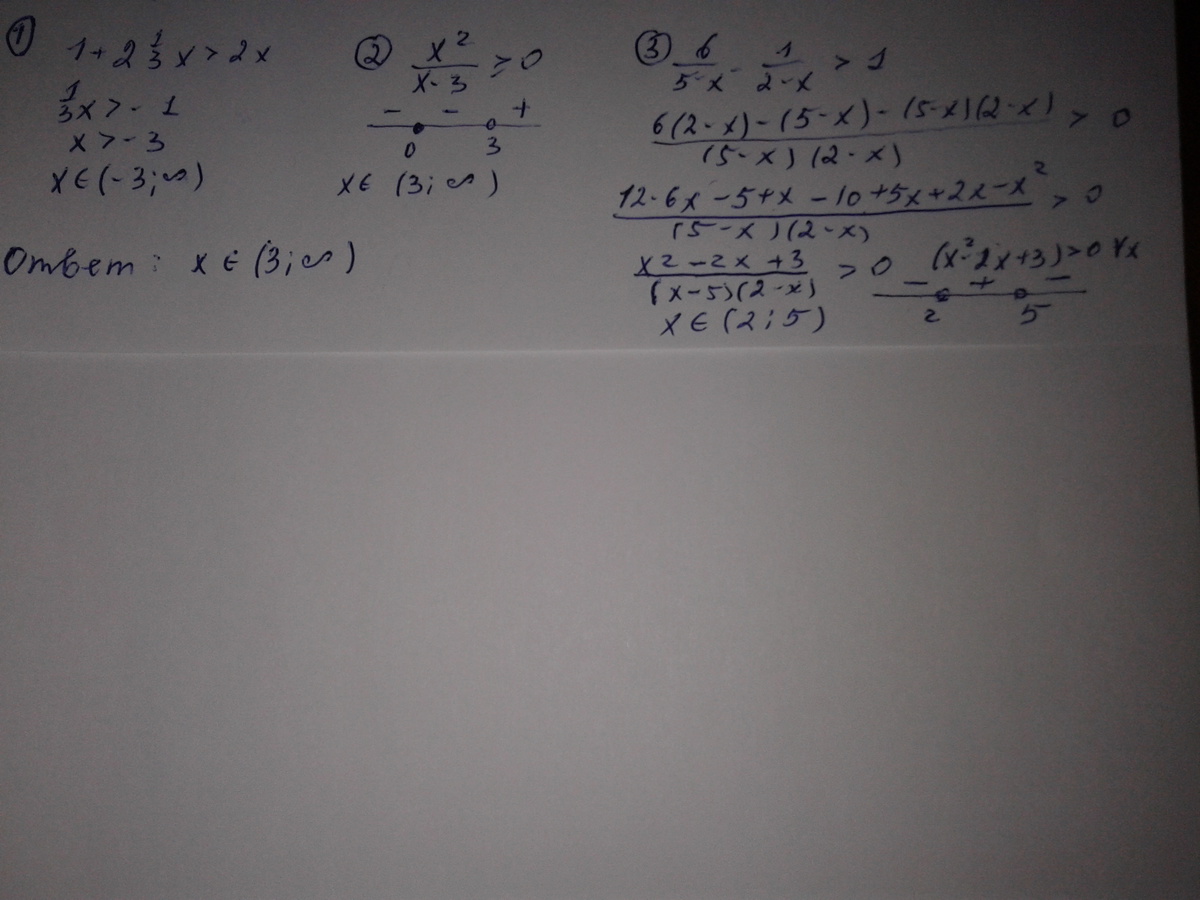 ① 1 + 2 1/3 x > 2x
1/3 x > - 1
x > - 3
x ∈ (-3; ∞)
② x² / (x - 3) ≥ 0
- - +
0 3
x ∈ (3; ∞)
Ответ: x ∈ (3; ∞)
③ 6/(5-x) - 1/(2-x) > 1
(6(2-x) - (5-x) - (5-x)(2-x)) / ((5-x)(2-x)) > 0
(12 - 6x - 5 + x - 10 + 5x + 2x - x²) / ((5-x)(2-x)) > 0
(x² - 2x + 3) / ((x-5)(2-x)) > 0 (x² - 2x + 3) > 0 ∀x
- + -
2 5
x ∈ (2; 5)